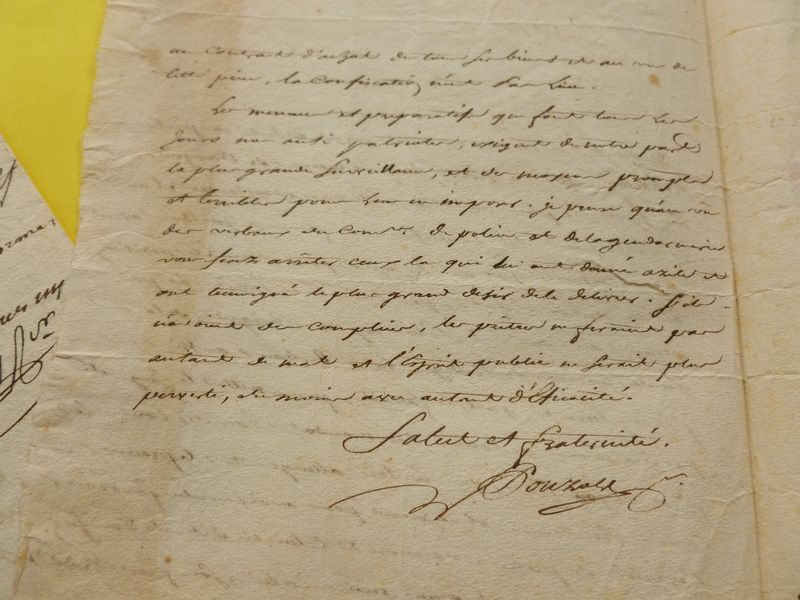 un Contract d'achat de tous ses biens et au vu de
cette pièce, la Confiscation s'en fait lieu.
Les menaces et préparatifs que font tous les
jours nos anti patriotes, exigent de notre part
la plus grande Surveillance, et des mesures promptes
et terribles pour leur en imposer. je pense qu'au vu
des verbaux du Com.re de police et de la gendarmerie
vous ferez arrêter ceux la qui lui ont donné azile et
ont temoigné le plus grand désir de le délivrer. S'ils
n'avoint des complices, les prêtres ne feraint pas
autant de mal et l'Esprit public ne serait plus
perverti, du moins avec autant d'éficacité.
Salut et fraternité.
Pouzols